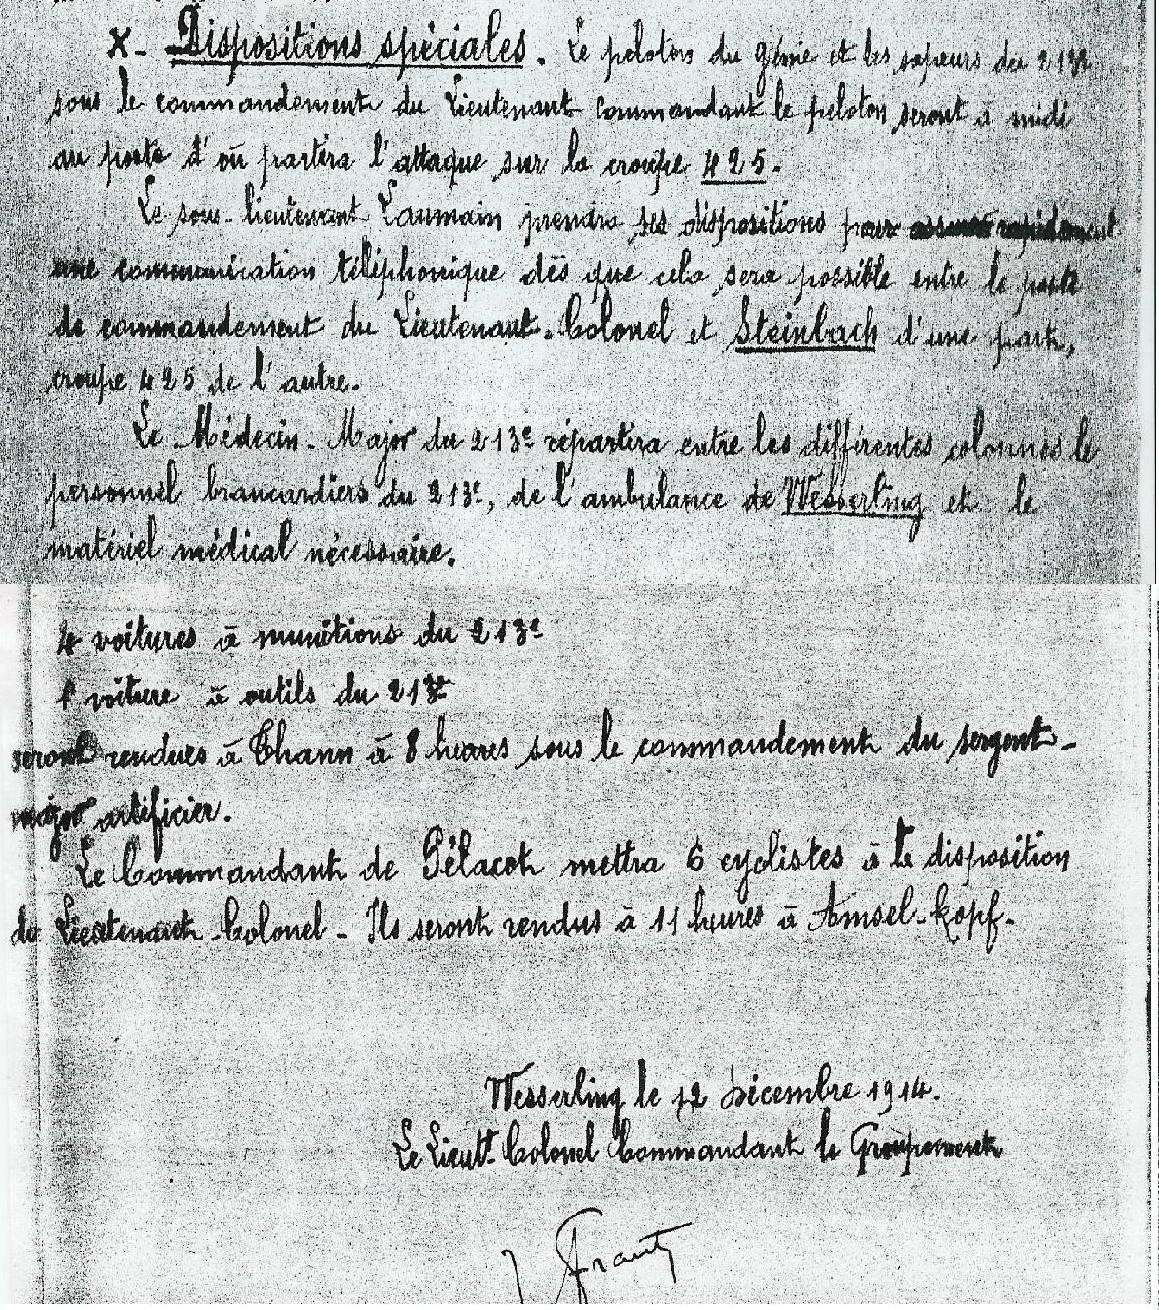 X - Dispositions spéciales. Le peloton du génie et les sapeurs du 213e
sous le commandement du Lieutenant commandant le peloton seront à midi
au poste d'où partira l'attaque sur la croupe 425.
Le sous-lieutenant Laumain prendra ses dispositions pour assurer rapidement
une communication téléphonique dès que cela sera possible entre le poste
de commandement du Lieutenant-Colonel et Steinbach d'une part,
croupe 425 de l'autre.
Le Médecin-Major du 213e répartira entre les différentes colonnes le
personnel brancardiers du 213e, de l'ambulance de Wesserling et le
matériel médical nécessaire.
4 voitures à munitions du 213e
1 voiture à outils du 213e
seront rendues à Thann à 8 heures sous le commandement du sergent-
major artificier.
Le Commandant de mettra 6 cyclistes à la disposition
du Lieutenant-Colonel - Ils seront rendus à 11 heures à Amsel-Kopf.
Wesserling le 12 Décembre 1914.
Le Lieutt Colonel Commandant le Groupement
Frantz